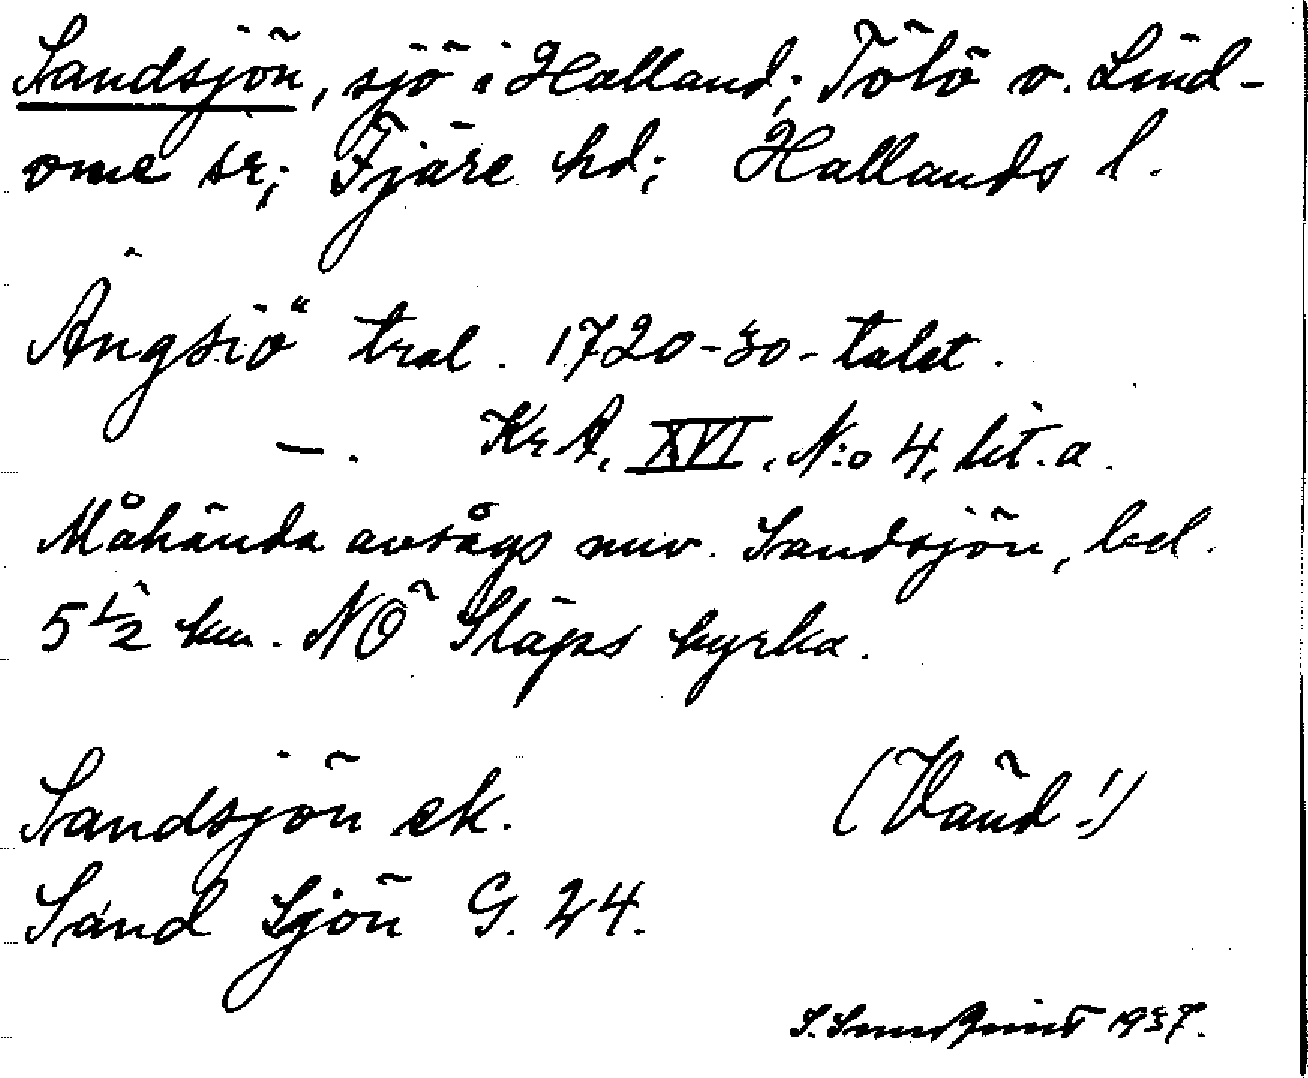 Sandsjön, sjö i Halland; Tölö o. Lind-
ome sr; Fjäre hd; Hallands l.
Ängsiö" tral. 1720-30-talet.
—. KrA, XVI, N:o 4, lit. a.
Måhända avsågs nuv. Sandsjön, bel.
5 1/2 km. NÖ Släps kyrka.
Sandsjön ek. (Vänd!)
Sand Sjön G. 24.
1937.